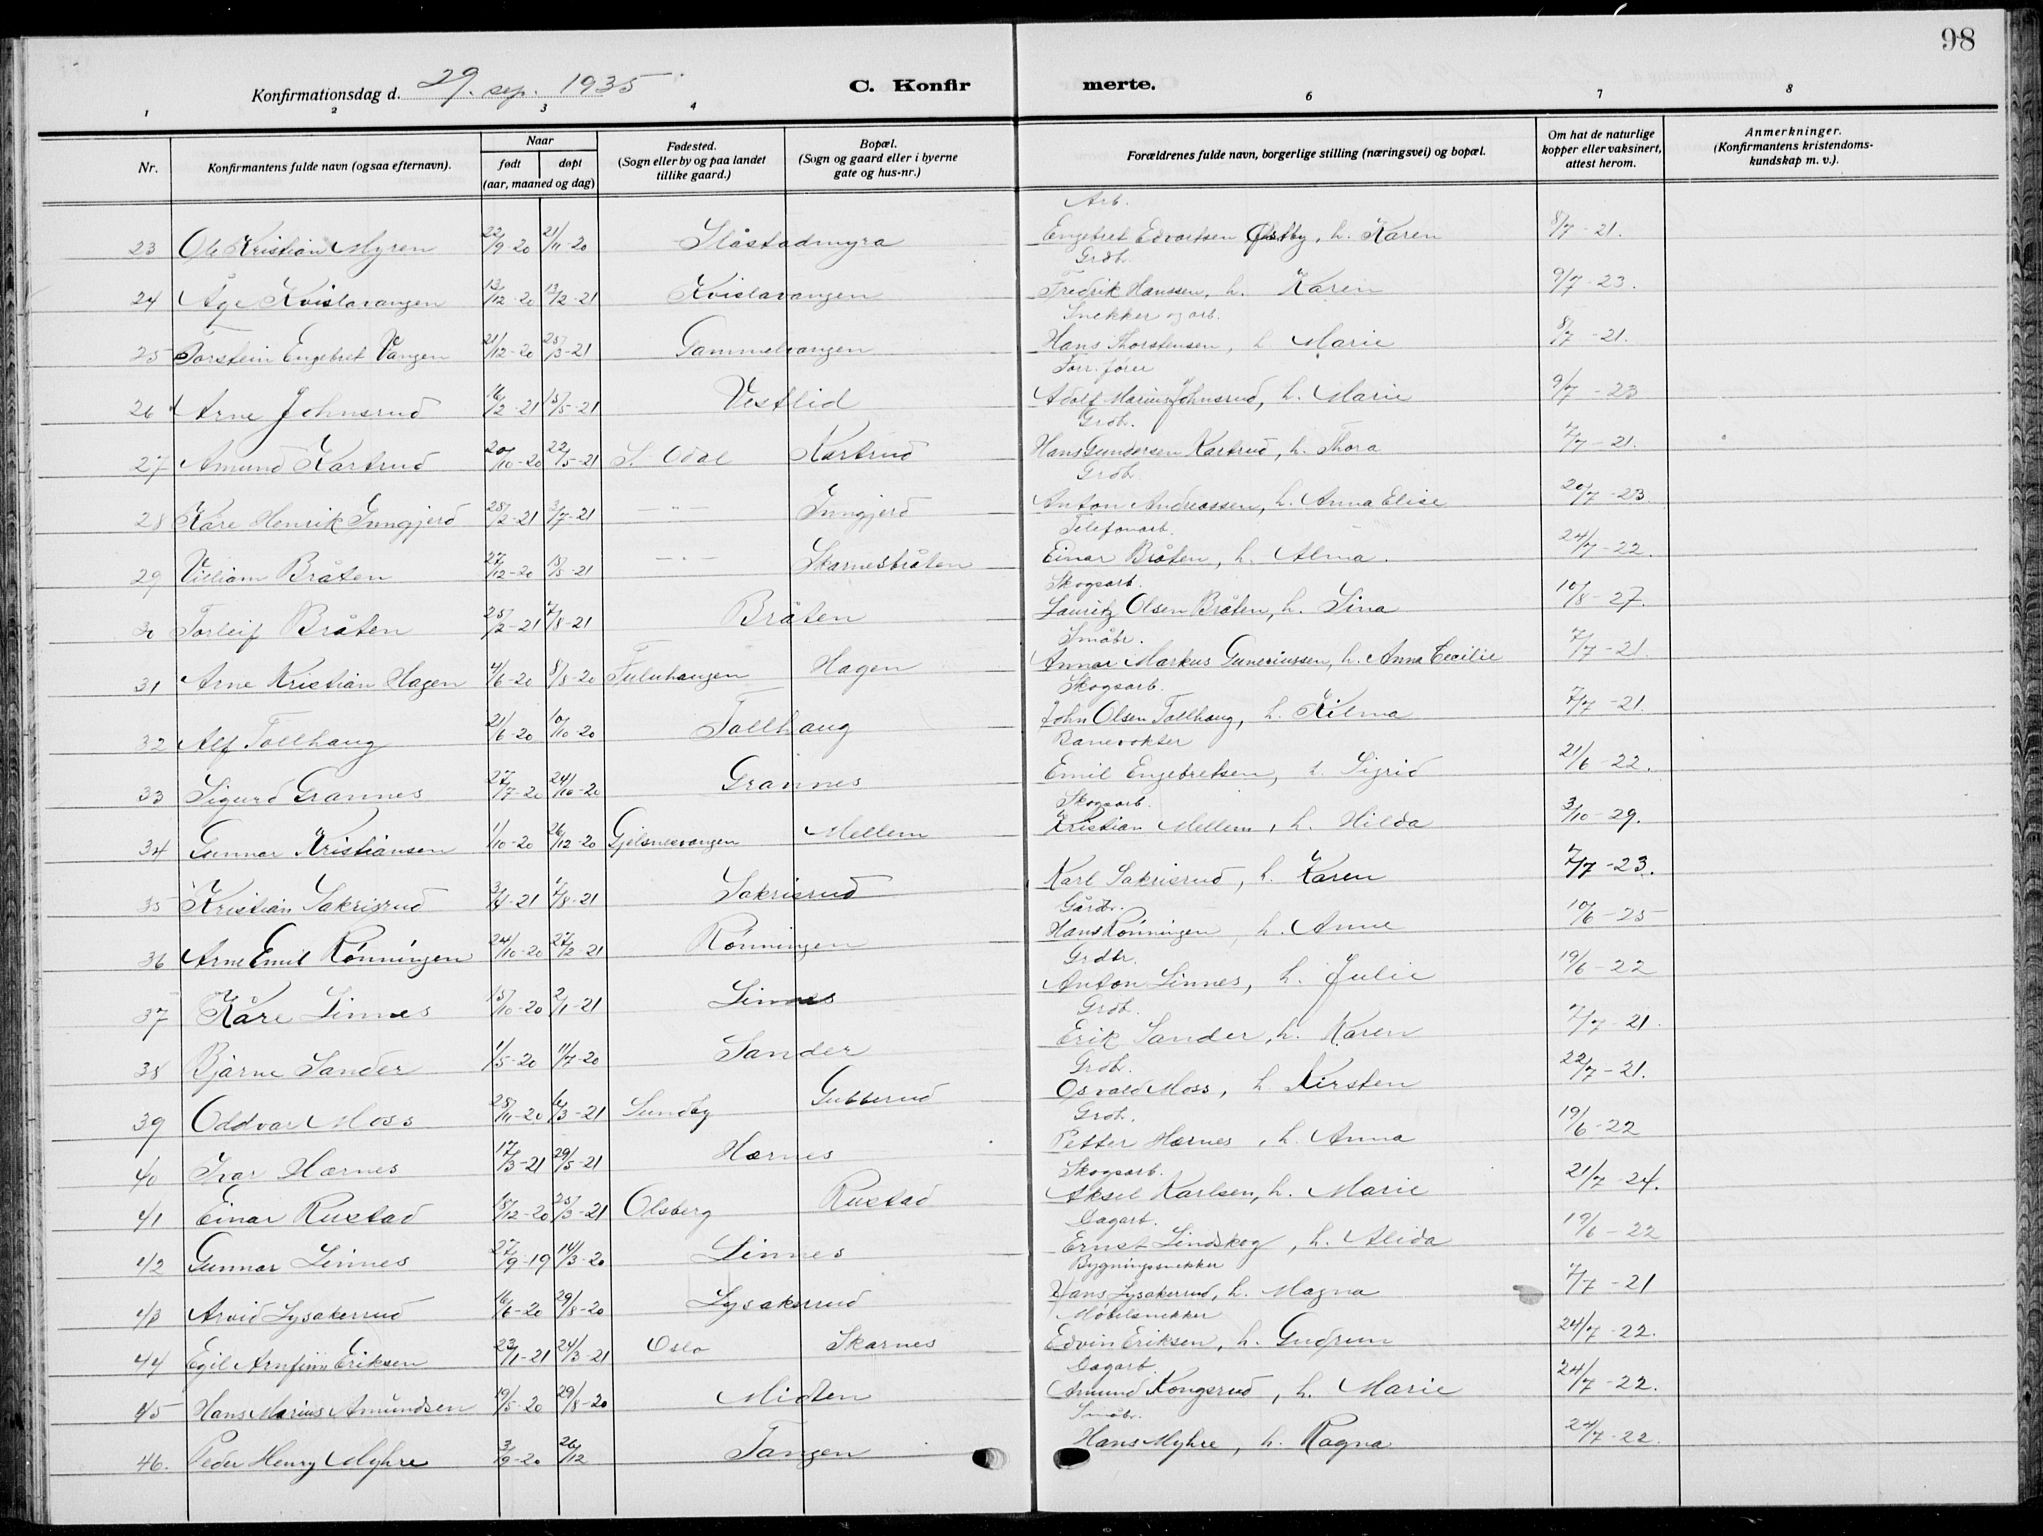 98
Konfirmationsdag d. 29. sep. 1935
C. Konfir merte.
1 2 3 4 6 7 8
Nr.
Konfirmantens fulde navn (ogsaa efternavn).
Naar
født døpt
(aar, maaned og dag)
Fødested.
(Sogn eller by og paa landet
tillike gaard.)
Bopæl.
(Sogn og gaard eller i byerne
gate og hus-nr.)
Forældrenes fulde navn, borgerlige stilling (næringsvei) og bopæl.
Om hat de naturlige
kopper eller vaksinert,
attest herom.
Anmerkninger.
(Konfirmantens kristendoms-
kundskap m. v.).
Arb.
23 Ole Kristian Myren 22/9-20 21/11-20 Slåstadmyra Engebret Edvartsen Østby, h. Karen 8/7-21.
Grdb.
24 Åge Kvislavangen 13/12-20 13/2-21 Kvislavangen Fredrik Hanssen, h. Karen 9/7-23.
Snekker og arb.
25 Torstein Engebret Vangen 21/12-20 25/3-21 Gammelvangen Hans Thorstensen, h. Marie 8/7-21.
Forr. fører
26 Arne Johnsrud 16/2-21 15/5-21 Vestlid Adolf Marius Johnsrud, h. Marie 9/7-23
Grdb.
27 Amund Kartrud 20/10-20 22/5-21 S. Odal Kartrud Hans Gundersen Kartrud, h. Thora 7/7-21.
Grdb.
28 Kåre Henrik Inngjerd 28/2-21 3/7-21 -"- Inngjerd Anton Andreassen, h. Anna Elise 20/7-23.
Telefonarb.
29 Villiam Bråten 27/12-20 15/5-21 -"- Skarnesbråten Einar Bråten, h. Alma. 24/7-22.
Skogsarb.
30 Torleif Bråten 25/2-21 7/8-21 Bråten Lauritz Olsen Bråten, h. Lina 10/8-27.
Småbr.
31 Arne Kristian Hagen 4/6-20 8/8-20 Fuluhaugen Hagen Annar Markus Guneriussen, h. Anna Cecilie 7/7-21.
Skogsarb.
32 Alf Tollhaug 21/6-20 10/10-20 Tollhaug John Olsen Tollhaug, h. Hilma 7/7-21.
Banevokter
33 Sigurd Grannes 27/7-20 24/10-20 Grannes Emil Engebretsen, h. Sigrid 21/6-22.
Skogsarb.
34 Gunnar Kristiansen 1/10-20 26/12-20 Gjelsnesvangen Mellem Kristian Mellem, h. Hilda 3/10-29.
35 Kristian Sakrisrud 3/4-21 7/8-21 Sakrisrud Karl Sakrisrud, h. Karen 7/7-23.
Gårdbr.
36 Arne Emil Rønningen 24/10-20 27/2-21 Rønningen Hans Rønningen, h. Anne 10/6-25
Grdbr.
37 Kåre Linnes 15/10-20 2/1-21 Linnes Anton Linnes, h. Julie 19/6-22
Grdb.
38 Bjarne Sander 1/5-20 11/7-20 Sander Erik Sander, h. Karen 7/7-21.
Grdb.
39 Oddvar Moss 28/11-20 6/3-21 Sundby Gubberud Osvald Moss, h. Kirsten 22/7-21.
Grdb.
40 Ivar Hernes 17/3-21 29/5-21 Hernes Petter Hernes, h. Anna 19/6-22
Skogsarb.
41 Einar Rustad 18/12-20 25/3-21 Olsberg Rustad Aksel Karlsen, h. Marie 21/7-24.
Dagarb.
42 Gunnar Linnes 27/9-19 14/3-20 Linnes Ernst Lindskog, h. Alida 19/6-22
Bygningssnekker
43 Arvid Lysakerrud 16/6-20 29/8-20 Lysakerrud Hans Lysakerrud, h. Magna 7/7-21
Møbelsnekker
44 Egil Arnfinn Eriksen 23/1-21 24/3-21 Oslo Skarnes Edvin Eriksen, h. Gudrun 24/7-22.
Dagarb.
45 Hans Marius Amundsen 19/5-20 29/8-20 Midten Amund Kongsrud, h. Marie 24/7-22.
Småbr.
46. Peder Henry Myhre 3/9-20 26/12 Tangen Hans Myhre, h. Ragna 24/7-22.